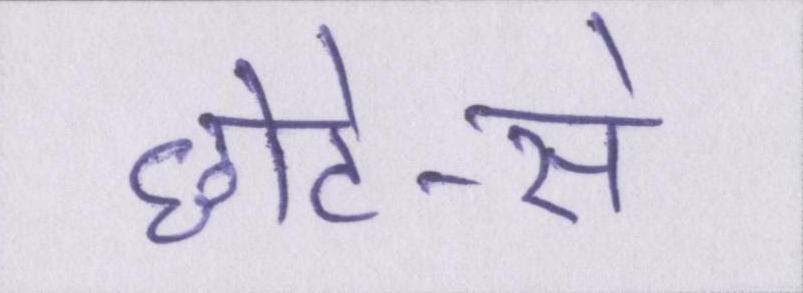 छोटे-से